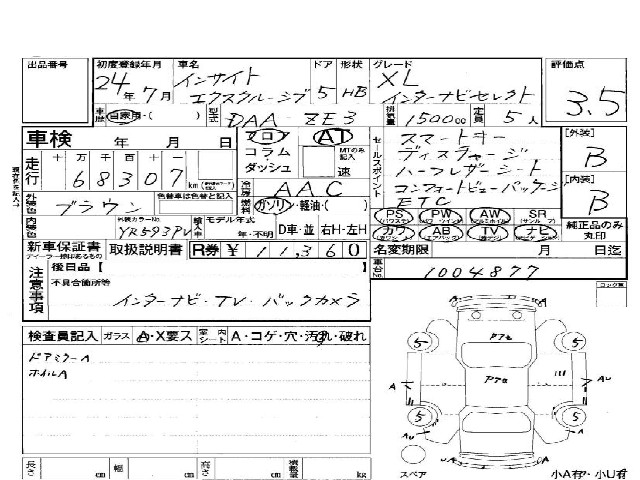 出品番号 初度登録年月 車名 ドア 形状 グレード 評価点
24年7月 インサイト エクスクルーシブ 5 HB XL インターナビセレクト 3.5
車歴 自家用・( ) 型式 DAA - ZE3 排気量 1500cc 定員 5人
車検 年 月 日 フロア AT
コラム MTのみ記入
ダッシュ 速
走行 十 万 千 百 十 一
68307 km
冷房 AAC
外装色 ブラウン 色替車は色替と記入 燃料 ガソリン・軽油・( )
内装色 外装カラーNo. YR593PV 輸入車 モデル年式 年・不明 D車・並 右H・左H
セールスポイント スマートキー
ディスチャージ
ハーフレザーシート
コンフォートビューパッケージ
ETC
[外装] B
[内装] B
PS PW AW SR
カワ AB TV ナビ
純正品のみ丸印
新車保証書 取扱説明書 R券 ¥11,360
名変期限 月 日迄
車台No. 1004877
注意事項 後日品【 】
不具合箇所等
インターナビ・TV・バックカメラ
検査員記入 ガラス A・X要ス 室内シート A・コゲ・穴・汚れ・破れ
ドアミラーA
ホイルA
長さ cm 幅 cm 高さ cm 積載量 kg
5 5
アア
A アア AU
5 5
AU
A A
スペア 小A有・小U有